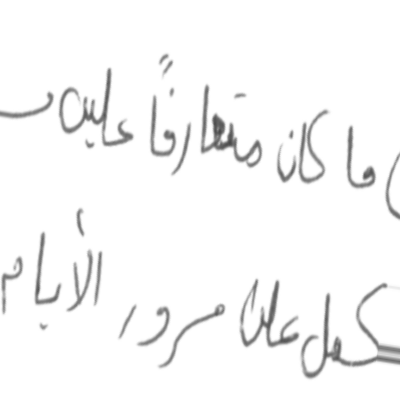 ما كان متعارفاً عليه
على مرور الأيام